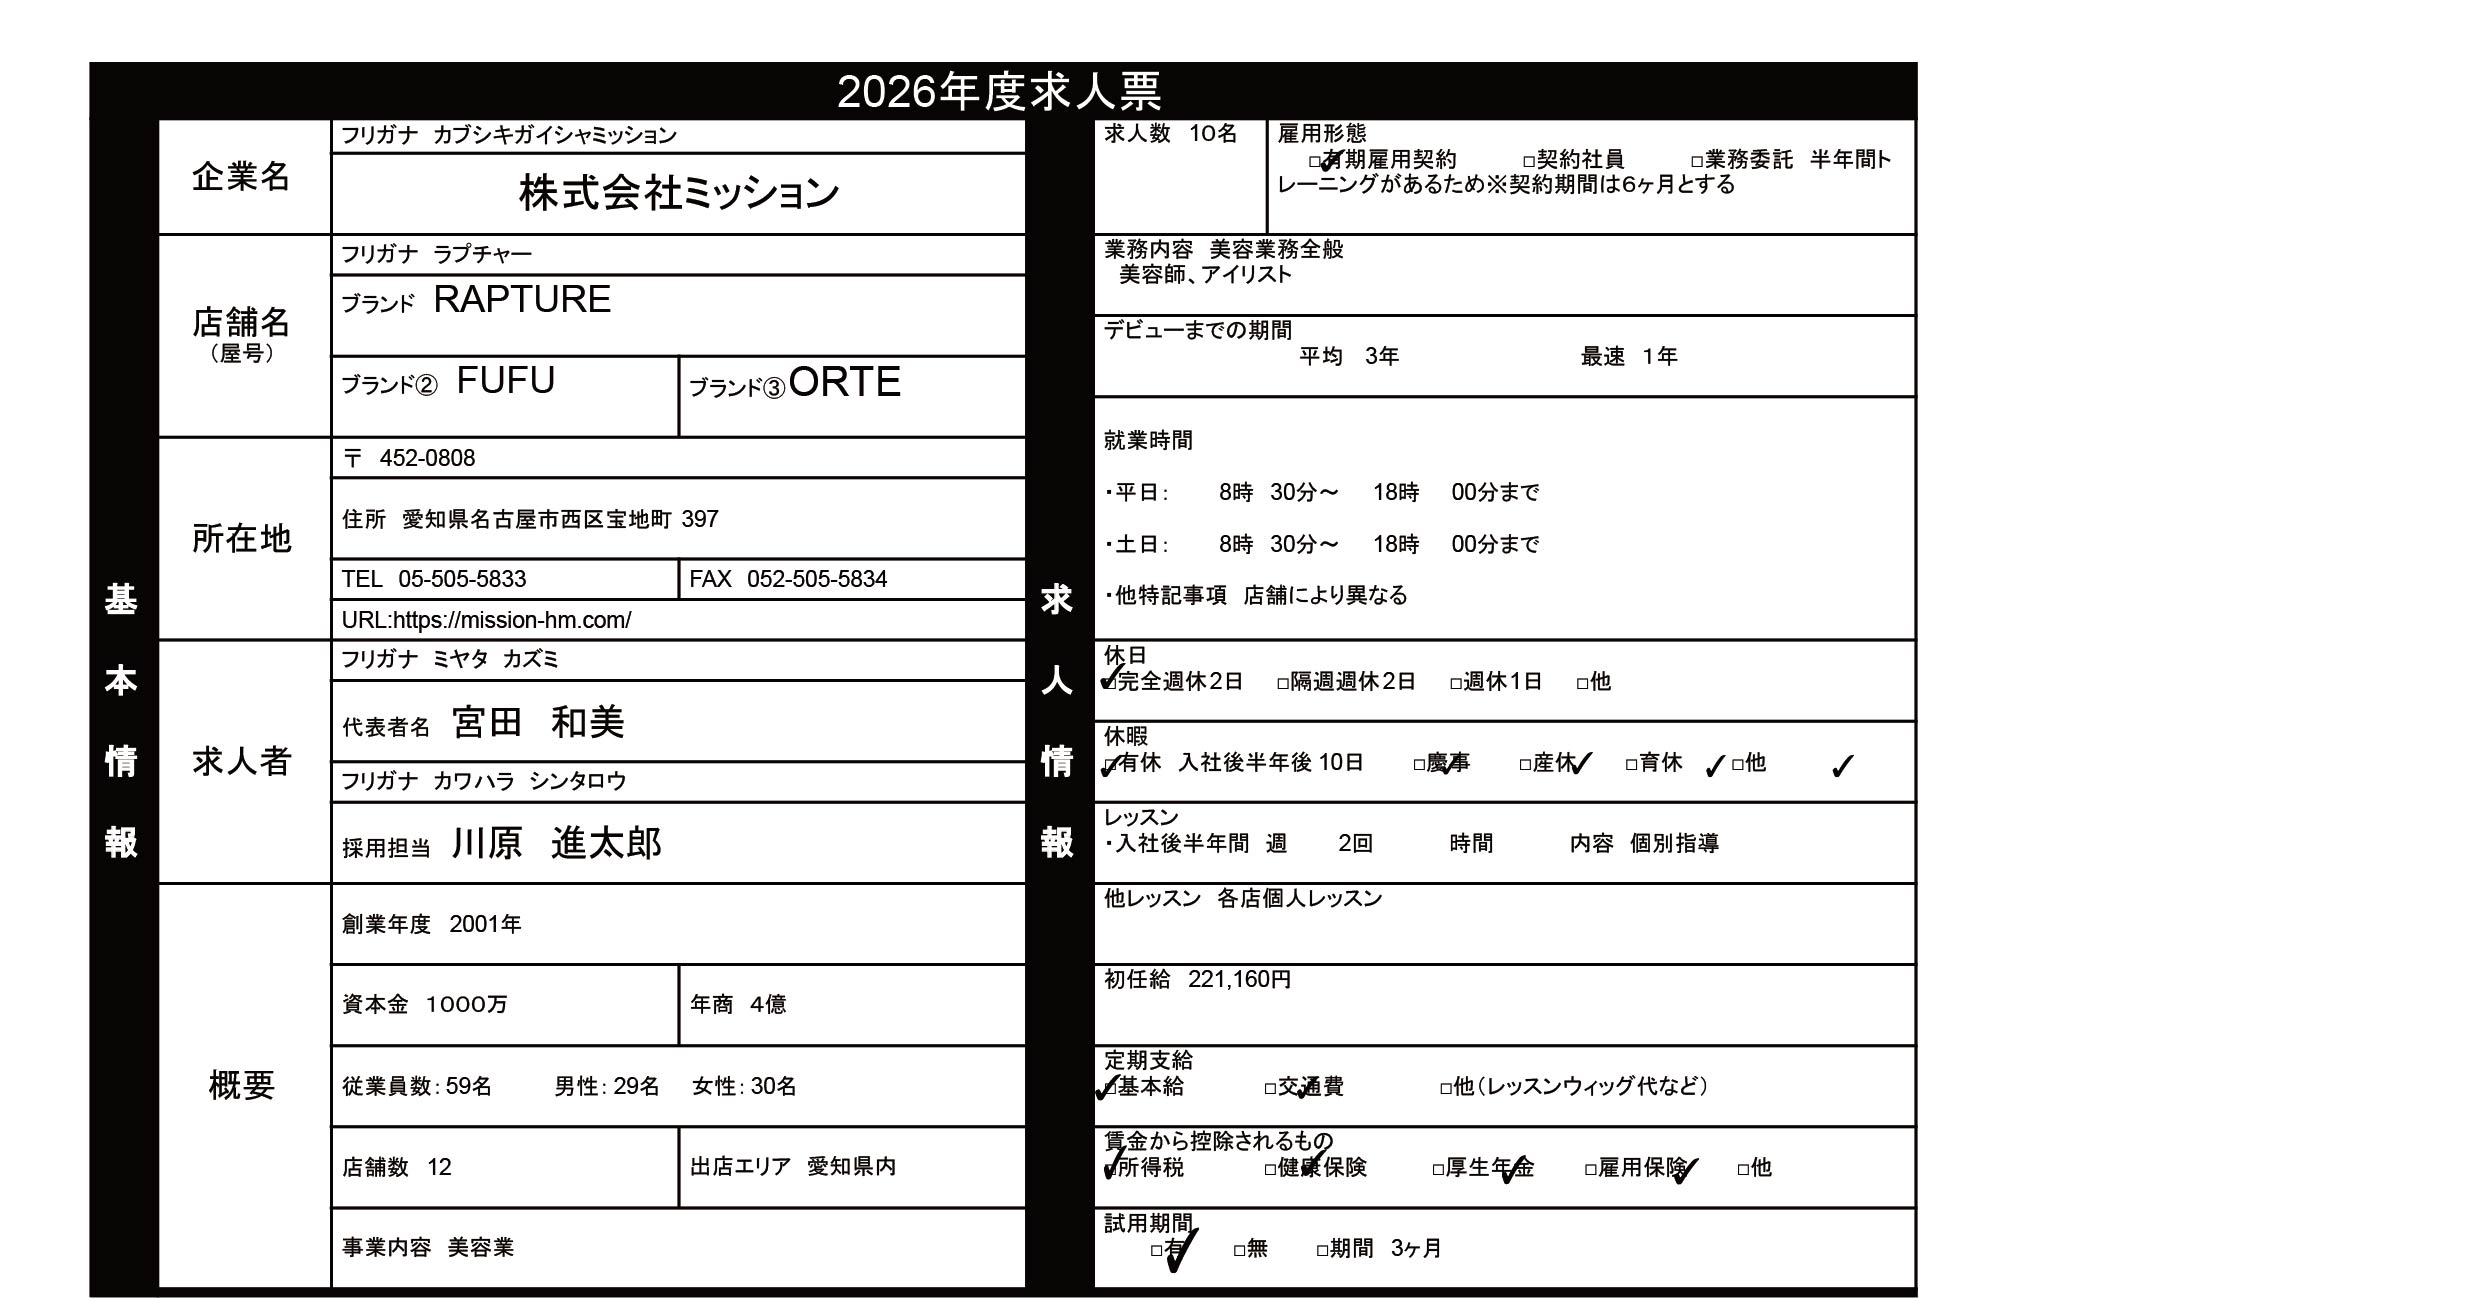 2026年度求人票
基本情報
企業名
フリガナ カブシキガイシャミッション
株式会社ミッション
店舗名
（屋号）
フリガナ ラプチャー
ブランド RAPTURE
ブランド② FUFU
ブランド③ORTE
所在地
〒 452-0808
住所 愛知県名古屋市西区宝地町 397
TEL 05-505-5833
FAX 052-505-5834
URL:https://mission-hm.com/
求人者
フリガナ ミヤタ カズミ
代表者名 宮田 和美
フリガナ カワハラ シンタロウ
採用担当 川原 進太郎
概要
創業年度 2001年
資本金 1000万
年商 4億
従業員数：59名 男性：29名 女性：30名
店舗数 12
出店エリア 愛知県内
事業内容 美容業
求人情報
求人数 10名
雇用形態
□✓有期雇用契約 □契約社員 □業務委託 半年間ト
レーニングがあるため※契約期間は6ヶ月とする
業務内容 美容業務全般
美容師、アイリスト
デビューまでの期間
平均 3年 最速 1年
就業時間
・平日： 8時 30分～ 18時 00分まで
・土日： 8時 30分～ 18時 00分まで
・他特記事項 店舗により異なる
休日
✓□完全週休2日 □隔週週休2日 □週休1日 □他
休暇
✓□有休 入社後半年後 10日 □慶事✓ □産休✓ □育休 ✓□他 ✓
レッスン
・入社後半年間 週 2回 時間 内容 個別指導
他レッスン 各店個人レッスン
初任給 221,160円
定期支給
✓□基本給 □交通費✓ □他（レッスンウィッグ代など）
賃金から控除されるもの
✓□所得税 □健康保険✓ □厚生年金✓ □雇用保険✓ □他
試用期間
□有✓ □無 □期間 3ヶ月